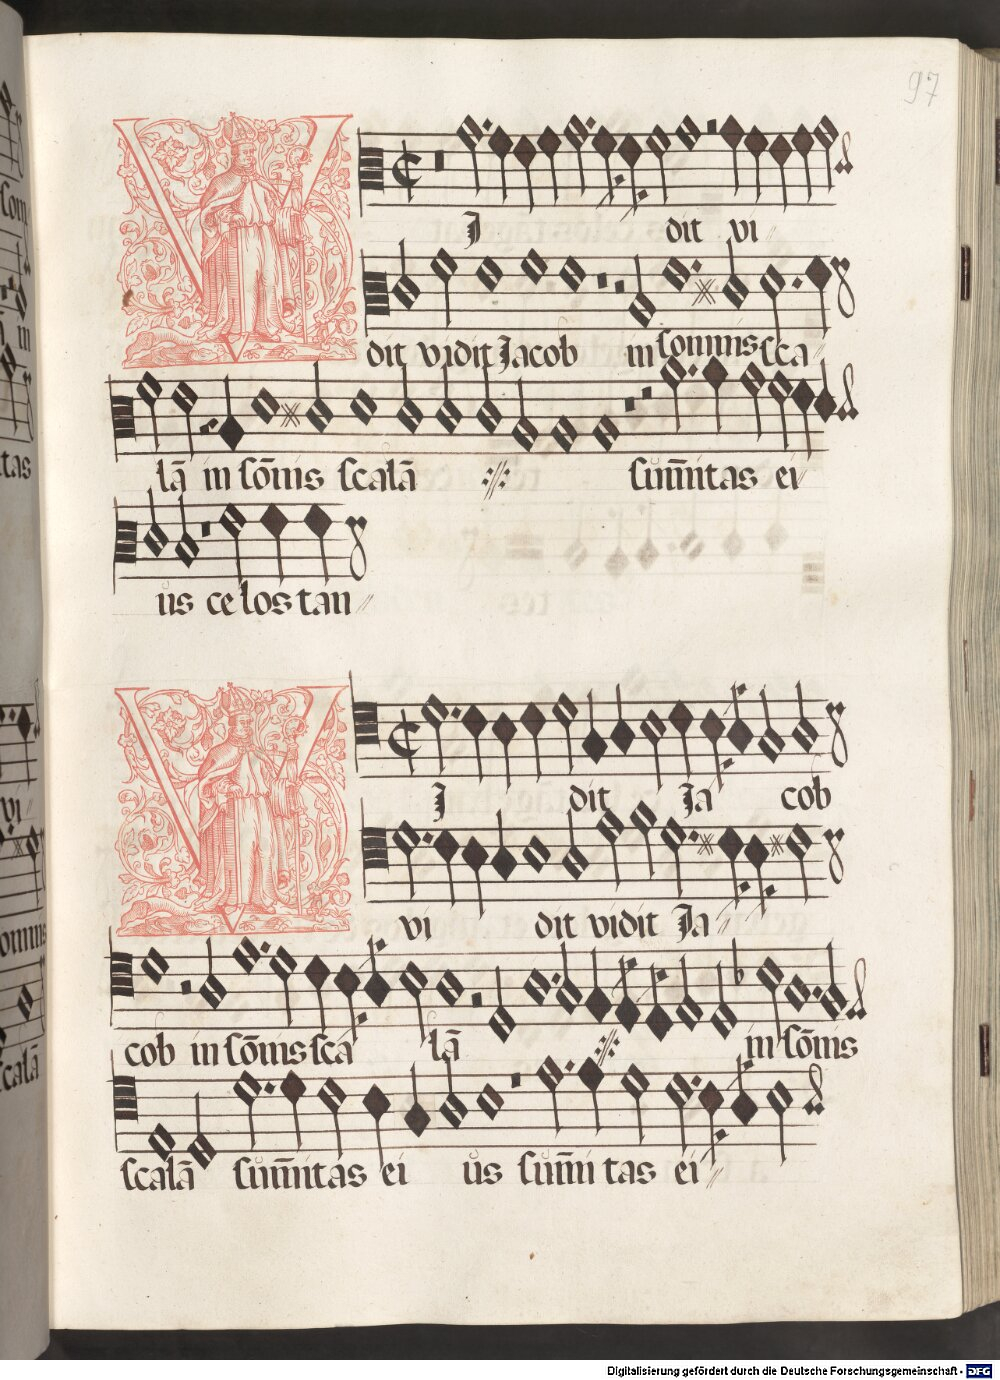 97
VJ dit vi
dit vidit Jacob in somnis sca
lā in sōnis scalā :||: sum̄itas ei
us celos tan
VJ dit Ja cob
vi dit vidit Ja
cob in sōnis sca lā :||: in sōnis
scalā sum̄itas ei us sum̄i tas ei
Digitalisierung gefördert durch die Deutsche Forschungsgemeinschaft - DFG